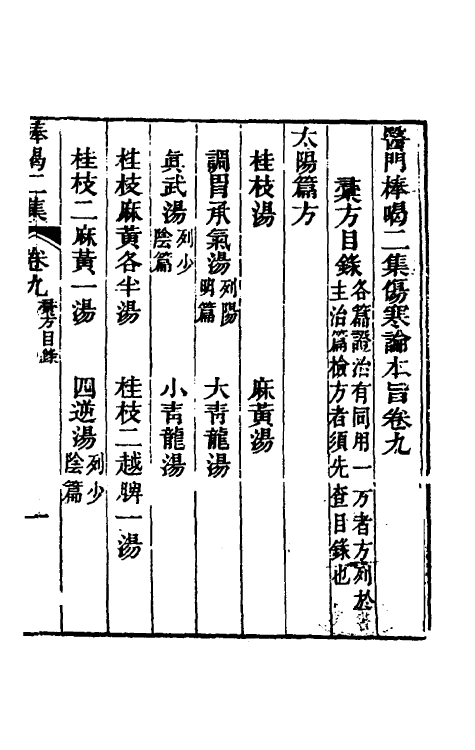 醫門棒喝二集傷寒論本旨卷九
彙方目錄 各篇證治有同用一方者方列於
主治篇檢方者須先查目錄也
太陽篇方
桂枝湯 麻黃湯
調胃承氣湯 列陽明篇 大青龍湯
眞武湯 列少陰篇 小青龍湯
桂枝麻黃各半湯 桂枝二越脾一湯
桂枝二麻黃一湯 四逆湯 列少陰篇
棒喝二集 卷九 彙方目錄 一